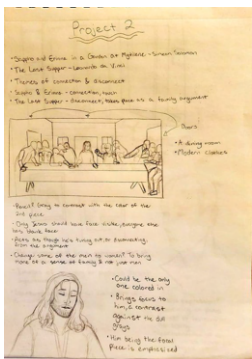 Project 2
- Sappho and Erinna in a Garden at Mytilene - Simeon Solomon
- The Last Supper - Leonardo da Vinci
- Themes of connection & disconnect
- Sappho & Erinna - connection,
- The Last Supper - disconnect, takes place as a family argument
Doors
- A dining room
- Modern clothes
- Pencil Drawing to contrast with the color of the 2nd piece
- Only Jesus should have face visible, everyone else
has blank faces
- Acts as though he's tuning out or dissociating
from the argument
- Change some of the men to women? To bring
more of a sense of family & not just men
- Could be the only
one colored in
- Brings focus to
him, & contrast
against the
grays
- Him being the focal
piece is emphasized